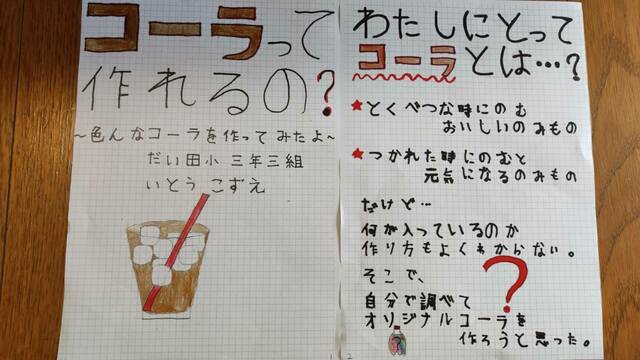 コーラって
作れるの?
~色んなコーラを作ってみたよ~
だい田小 三年三組
いとう こずえ
1
わたしにとって
コーラとは…?
★とくべつな時にのむ
おいしいのみもの
★つかれた時にのむと
元気になるのみもの
だけど…
何が入っているのか
作り方もよくわからない。
そこで、
自分で調べて
オリジナルコーラを
作ろうと思った。
?
2